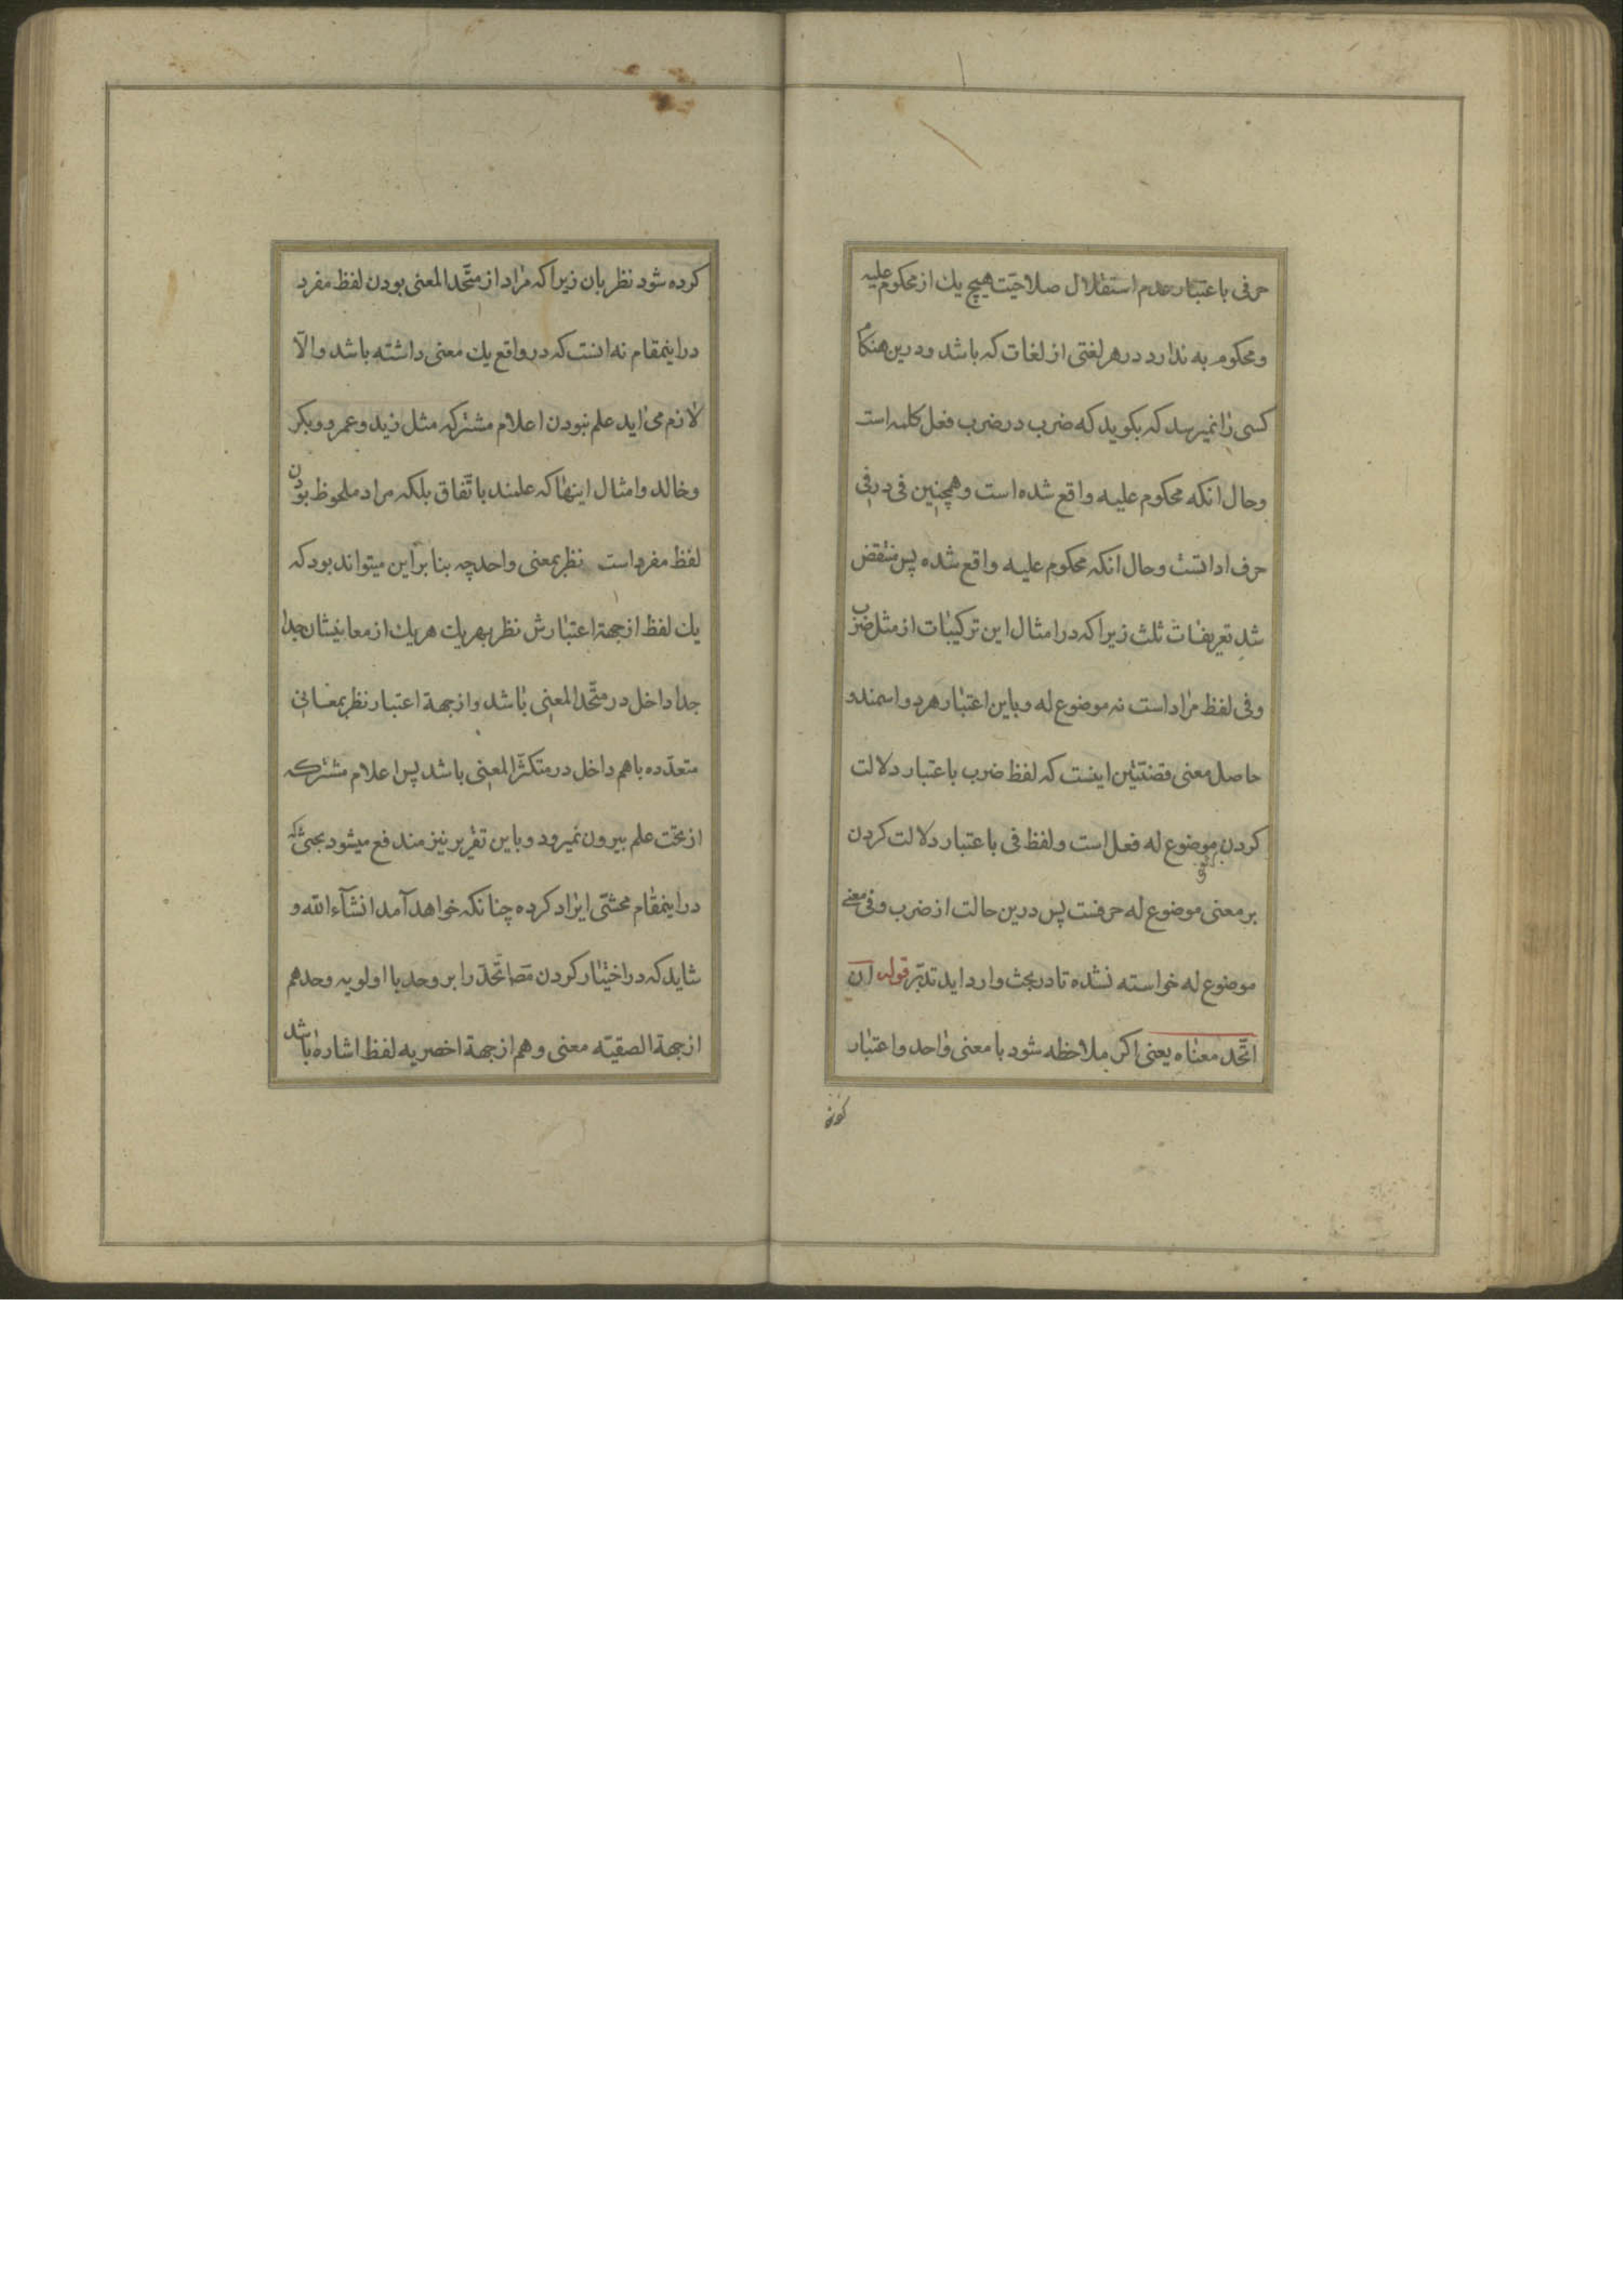 حرفی باعتبار عدم استقلال صلاحیت هیچ یك از محکوم علیه
و محکوم به ندارد در هر لغتی از لغات که باشد و درین هنکام
کسی را نمیرسد که بکوید که ضرب در ضرب فعل کلمه است
و حال انکه محکوم علیه واقع شده است و همچنین فی در فی
حرف اداتست و حال انکه محکوم علیه واقع شده پس منتقض
شد تعریفات ثلث زیرا که در امثال این ترکیبات از مثل ضرب
و فی لفظ مراد است نه موضوع له و باین اعتبار هر دو اسمند و
حاصل معنی قضیتین اینست که لفظ ضرب باعتبار دلالت
کردن بر موضوع له فعل است و لفظ فی باعتبار دلالت کردن
بر معنی موضوع له حرفست پس درین حالت از ضرب و فی معنی
موضوع له خواسته نشده تا در بحث وارد اید تدبّر قوله ان
اتّحد معناه یعنی اکر ملاحظه شود با معنی واحد و اعتبار
کرده
کرده شود نظر بان زیرا که مراد از متّحد المعنی بودن لفظ مفرد
در اینمقام نه انست که در واقع یك معنی داشته باشد و الّا
لازم می اید علم نبودن اعلام مشترکه مثل زید و عمرو و بکر
و خالد و امثال اینها که علمند باتّفاق بلکه مراد ملحوظ بودن
لفظ مفرد است نظر بمعنی واحد چه بنا بر این میتواند بود که
یك لفظ از جهة اعتبارش نظر بهر یك هر یك از معانیشان جدا
جدا داخل در متّحد المعنی باشد و از جهة اعتبار نظر بمعانی
متعدّده باهم داخل در متکثّر المعنی باشد پس اعلام مشترکه
از تحت علم بیرون نمیرود و باین تقریر نیز مندفع میشود بحثی که
در اینمقام محشّی ایراد کرده چنانکه خواهد آمد انشآء الله و
شاید که در اختیار کردن مص اتّحد را بر وحد با اولویه وحد هم
از جهة الصقیته معنی و هم از جهة اخصریه لفظ اشاره باشد